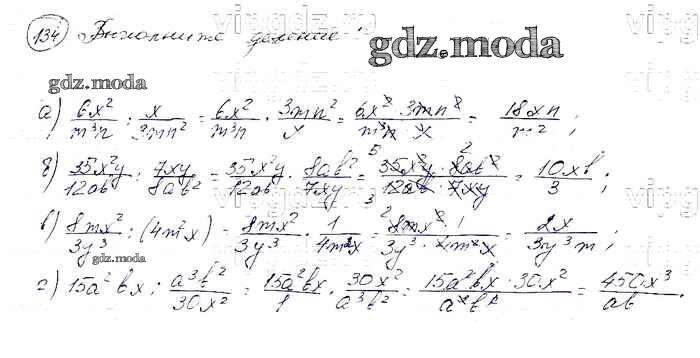 134 Выполните деление:
gdz.moda
gdz.moda
а) 6x²/m³n : x/3mn² = 6x²/m³n · 3mn²/x = 6x² · 3mn²/m³n · x = 18xn/m² ;
б) 35x²y/12ab : 7xy/8ab² = 35x²y/12ab · 8ab²/7xy = 35x²y · 8ab²/12ab · 7xy = 10xb/3 ;
в) 8mx²/3y³ : (4m²x) = 8mx²/3y³ · 1/4m²x = 8mx² · 1/3y³ · 4m²x = 2x/3y³m ;
gdz.moda
г) 15a²bx : a³b²/30x² = 15a²bx/1 · 30x²/a³b² = 15a²bx · 30x²/a³b² = 450x³/ab .